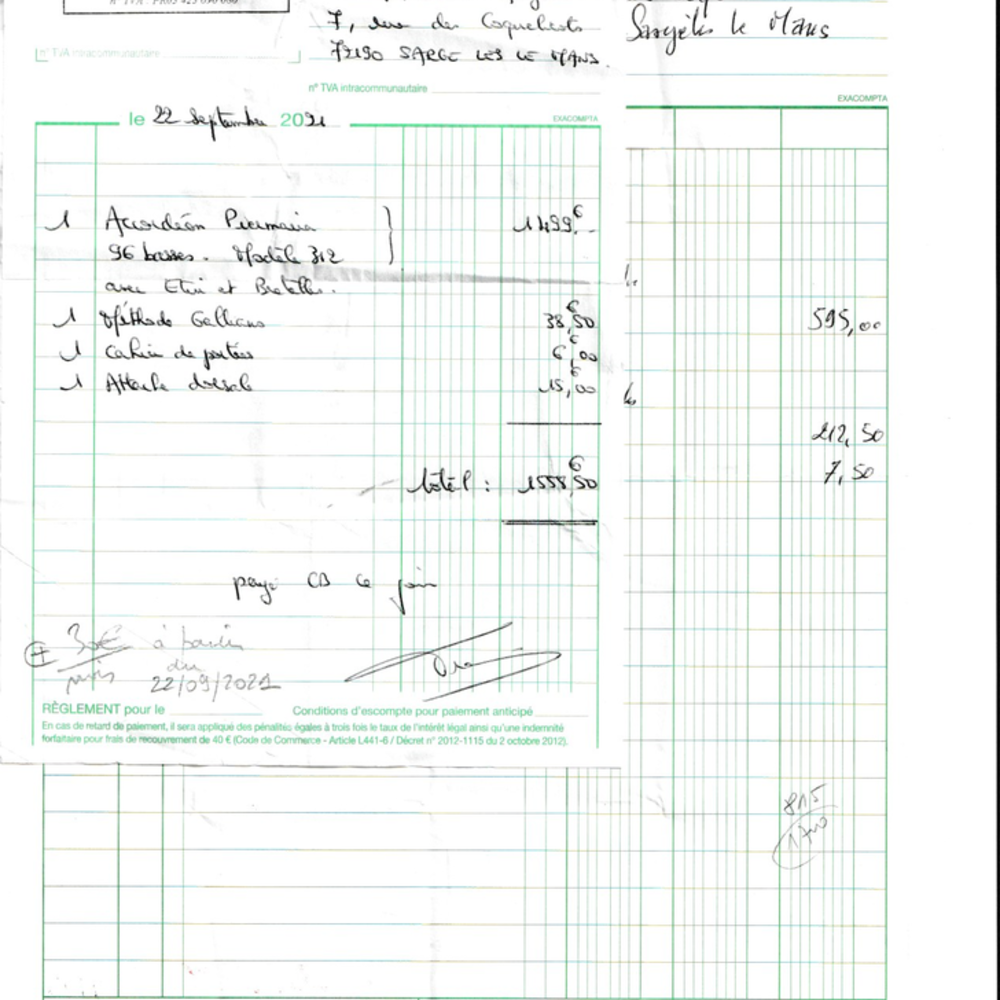 7, rue des Coquelicots
72190 SARGE LES LE MANS.
Sargé les le Mans
n° TVA intracommunautaire
n° TVA intracommunautaire
EXACOMPTA
le 22 Septembre 2021
EXACOMPTA
1 Accordéon Piermaria 1499,€-
96 basses. Modèle 312
avec Etui et Bretelles.
1 Méthode Galliano 38,€50
595,00
1 Cahier de portées 6,€00
1 Attache dorsale 15,€00
212,50
7,50
total : 1558,€50
payé CB ce jour
+ 30€ à
du
22/09/2021
RÈGLEMENT pour le
Conditions d'escompte pour paiement anticipé
En cas de retard de paiement, il sera appliqué des pénalités égales à trois fois le taux de l'intérêt légal ainsi qu'une indemnité
forfaitaire pour frais de recouvrement de 40 € (Code de Commerce - Article L441-6 / Décret n° 2012-1115 du 2 octobre 2012).
815